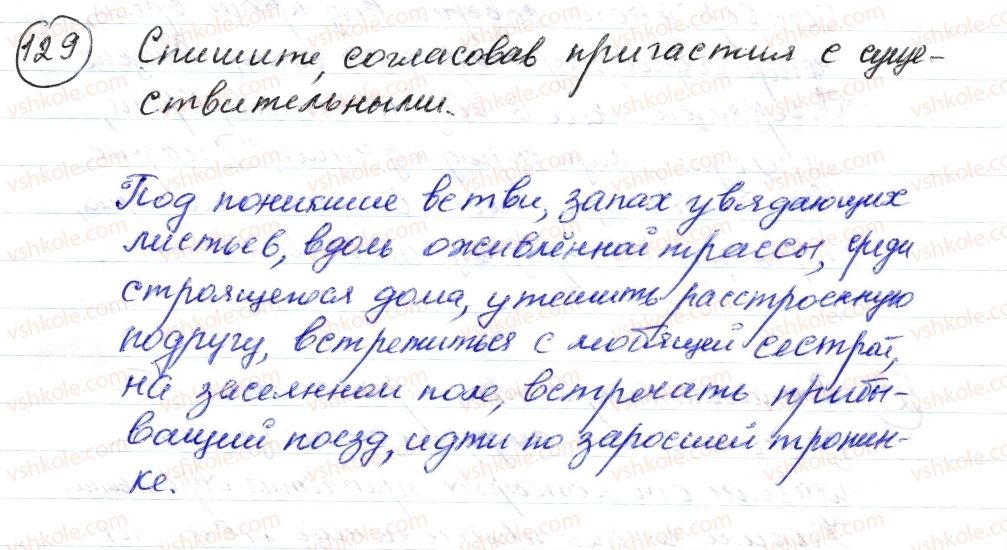 129 Спишите, согласовав причастия с суще-
ствительными.
Под поникшие ветви, запах увядающих
листьев, вдоль оживлённой трассы, среди
строящегося дома, утешить расстроенную
подругу, встретиться с любящей сестрой,
на засеянном поле, встречать прибы-
вающий поезд, идти по заросшей тропин-
ке.